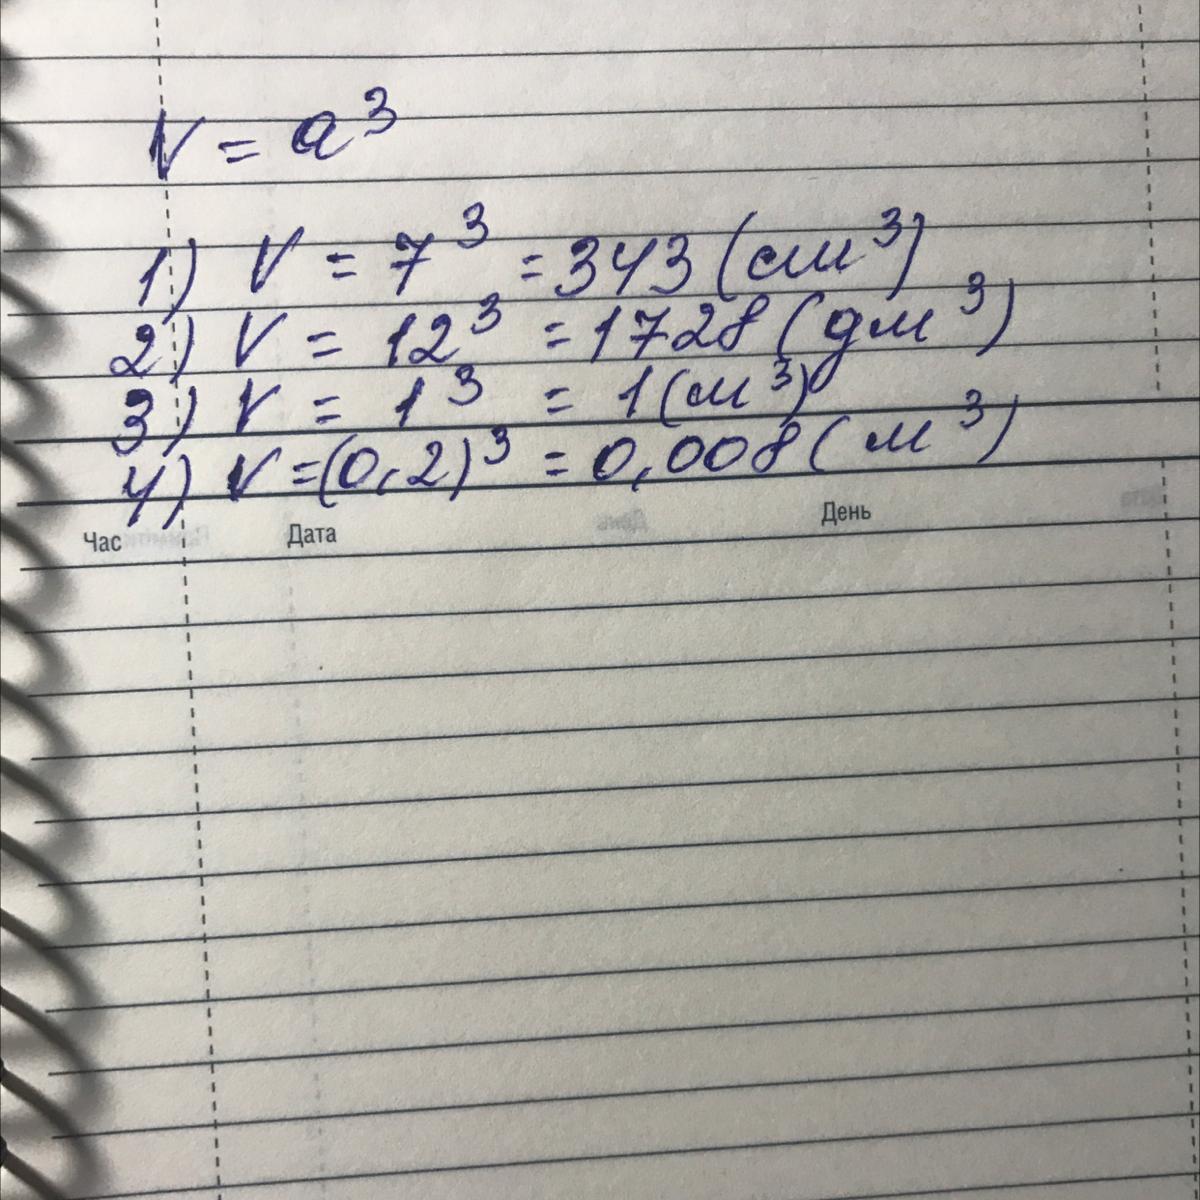 V = a³
1) V = 7³ = 343 (см³)
2) V = 12³ = 1728 (дм³)
3) V = 1³ = 1 (м³)
4) V = (0,2)³ = 0,008 (м³)
Час Дата День